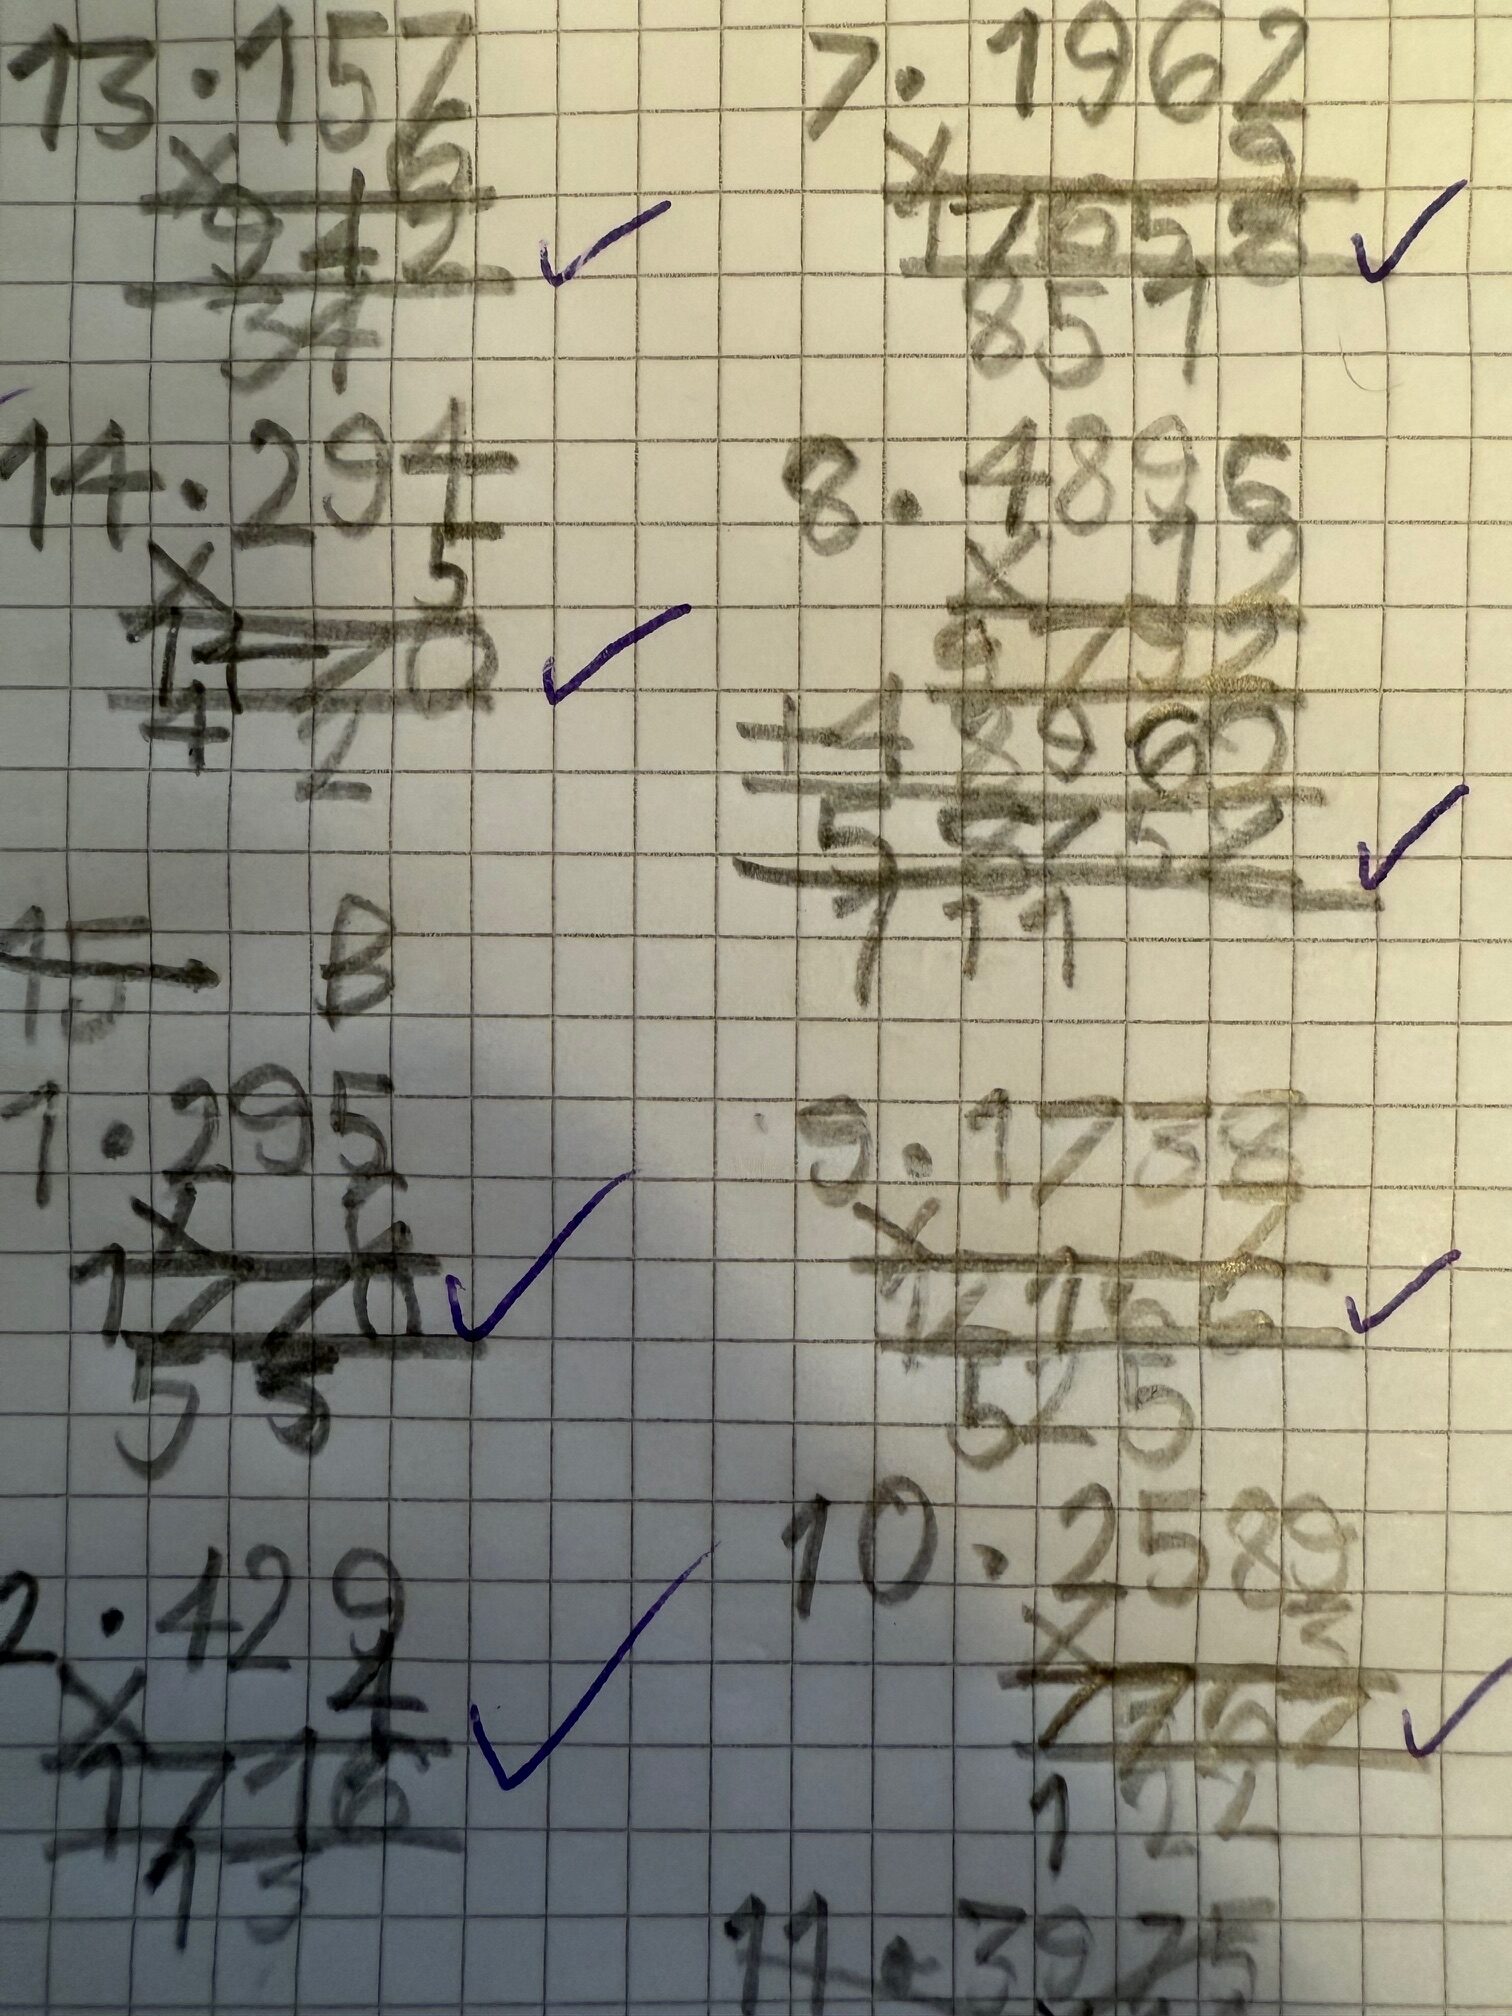 13. 157
x 6
942
34
14. 294
x 5
1470
4 2
15 B
1. 295
x 6
1770
5 5
2. 429
x 4
1716
1 3
7. 1962
x 9
17658
851
8. 4896
x 12
9792
+48960
58752
1 1 1
9. 1738
x 7
12166
525
10. 2589
x 3
7767
1 22
11. 3975